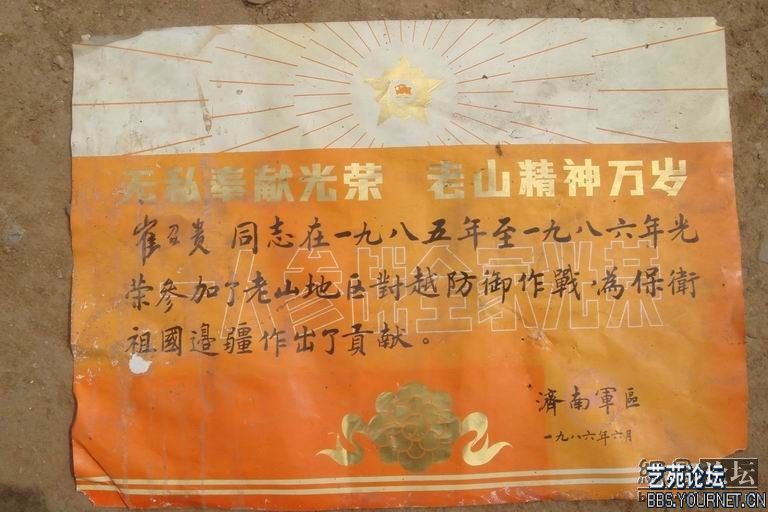 无私奉献光荣 老山精神万岁
崔召贵 同志在一九八五年至一九八六年光
荣参加了老山地区對越防御作戰，為保衛
祖國邊疆作出了貢献。
一人参战全家光荣
濟南軍區
一九八六年六月
艺苑论坛
BBS.YOURNET.CN